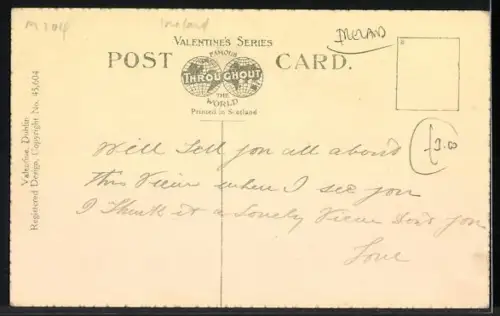 M304
Ireland
IRELAND
VALENTINE'S SERIES
POST CARD.
FAMOUS
THROUGHOUT
THE
WORLD
Printed in Scotland
Valentine, Dublin.
Registered Design, Copyright No. 45,604
£3.00
Will tell you all about
this View when I see you
I think it a lovely View Don't you
Love